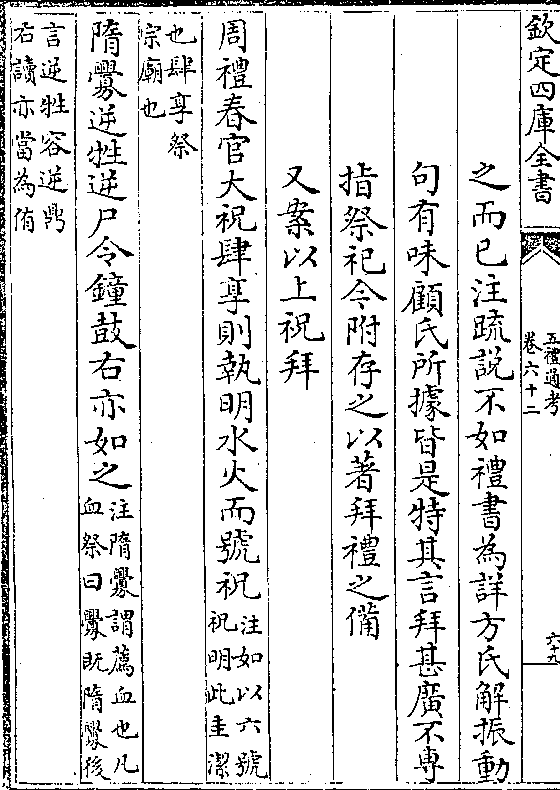 欽定四庫全書
五禮通考
卷六十二
六十九
之而已注疏說不如禮書為詳方氏解振動
句有味顧氏所據皆是特其言拜甚廣不専
指祭祀今附存之以著拜禮之備
又案以上祝拜
周禮春官大祝肆享則執明水火而號祝
注如以六號
祝明此圭潔
也肆享祭
宗廟也
隋釁逆牲逆尸令鐘鼓右亦如之
注隋釁謂薦血也凡
血祭曰釁既隋釁後
言逆牲容逆鼎
右讀亦當為侑